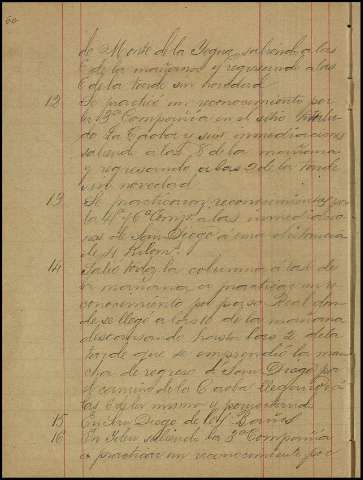 60
de Monte de la Yegua, saliendo a las
6 de la mañana y regresando a las
6 de la tarde sin novedad
12 Se practicó un reconocimiento por
la 13ª Compañia en el sitio titula
do La Caoba y sus inmediaciones
saliendo a las 8 de la mañana
y regresando a las 2 de la tarde
sin novedad
13 Se practicaron reconocimientos por
la 4ª y 6ª Compª a las inmediacio
nes de San Diego á una distancia
de 4 Kilomˢ.
14 Salió toda la columna á las de
la mañana a practicar un re
conocimiento por paso Real don
de se llegó a las de la mañana
descansando hasta las de la
tarde que se emprendió la mar
cha de regreso á San Diego por
el camino de la Caoba llegando á
las 6 de la misma y pernoctando
15 En San Diego de los Baños
16 En Idem saliendo la 3ª Compañia
a practicar un reconocimiento por